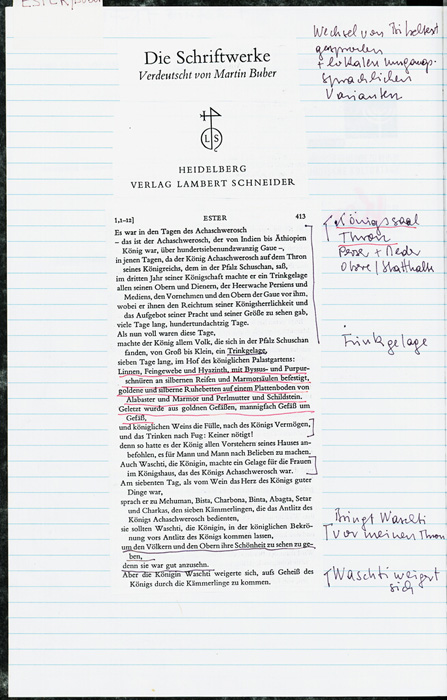 ESTER
Wechsel von Bibeltext
gesprochen
+ lokalen umgangs-
sprachlichen
Varianten
Die Schriftwerke
Verdeutscht von Martin Buber
L S
HEIDELBERG
VERLAG LAMBERT SCHNEIDER
1,1–12] ESTER 413
Es war in den Tagen des Achaschwerosch
– das ist der Achaschwerosch, der von Indien bis Äthiopien
König war, über hundertsiebenundzwanzig Gaue –,
in jenen Tagen, da der König Achaschwerosch auf dem Thron
seines Königreichs, dem in der Pfalz Schuschan, saß,
im dritten Jahr seiner Königschaft machte er ein Trinkgelage
allen seinen Obern und Dienern, der Heerwache Persiens und
Mediens, den Vornehmen und den Obern der Gaue vor ihm,
wobei er ihnen den Reichtum seiner Königsherrlichkeit und
das Aufgebot seiner Pracht und seiner Größe zu sehen gab,
viele Tage lang, hundertundachtzig Tage.
Als nun voll waren diese Tage,
machte der König allem Volk, die sich in der Pfalz Schuschan
fanden, von Groß bis Klein, ein Trinkgelage,
sieben Tage lang, im Hof des königlichen Palastgartens:
Linnen, Feingewebe und Hyazinth, mit Byssus- und Purpur-
schnüren an silbernen Reifen und Marmorsäulen befestigt,
goldene und silberne Ruhebetten auf einem Plattenboden von
Alabaster und Marmor und Perlmutter und Schildstein.
Geletzt wurde aus goldnen Gefäßen, mannigfach Gefäß um
Gefäß,
und königlichen Weins die Fülle, nach des Königs Vermögen,
und das Trinken nach Fug: Keiner nötigt!
denn so hatte es der König allen Vorstehern seines Hauses an-
befohlen, es für Mann und Mann nach Belieben zu machen.
Auch Waschti, die Königin, machte ein Gelage für die Frauen
im Königshaus, das des Königs Achaschwerosch war.
Am siebenten Tag, als vom Wein das Herz des Königs guter
Dinge war,
sprach er zu Mehuman, Bista, Charbona, Bigta, Abagta, Setar
und Charkas, den sieben Kämmerlingen, die das Antlitz des
Königs Achaschwerosch bedienten,
sie sollten Waschti, die Königin, in der königlichen Bekrö-
nung vors Antlitz des Königs kommen lassen,
um den Völkern und den Obern ihre Schönheit zu sehen zu ge-
ben,
denn sie war gut anzusehn.
Aber die Königin Waschti weigerte sich, aufs Geheiß des
Königs durch die Kämmerlinge zu kommen.
Königssaal
Thron
Perser + Meder
Obere / Statthalt
Trinkgelage
Bringt Waschti
vor meinen Thron
Waschti weigert
sich